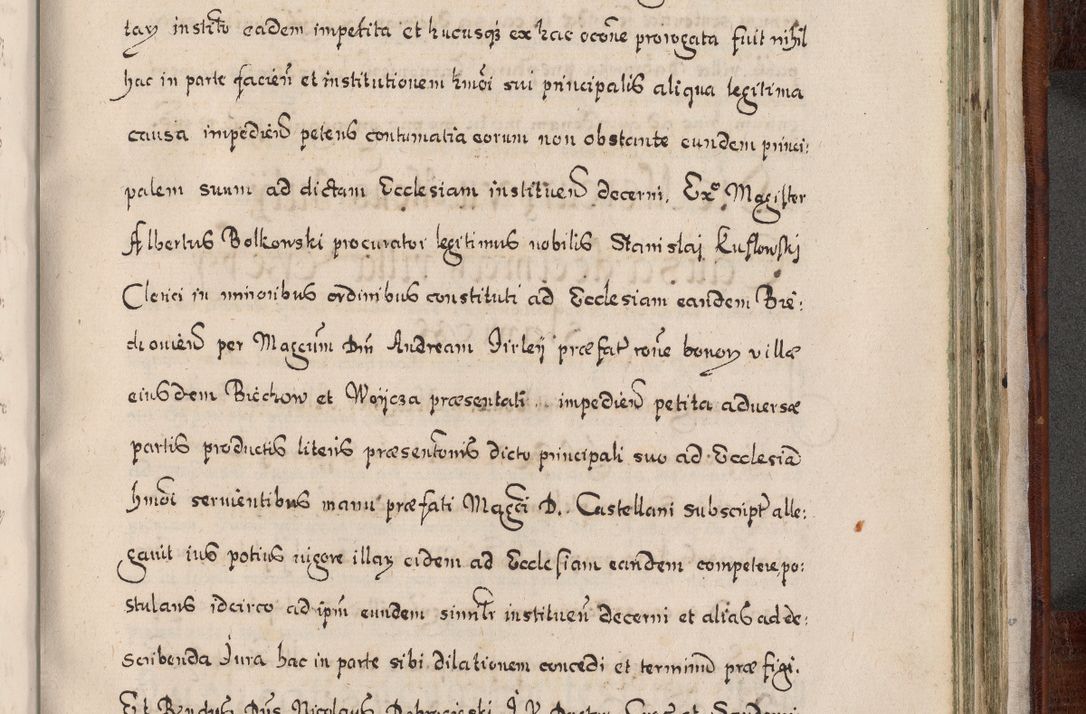 tay instito eadem impetita et hucusqȝ ex hac ocone prorogata fuit nihil
hac in parte facien et institutionem hmoi sui principalis aliqua legitima
causa impedien petens contumatia eorum non obstante eundem princi:
palem suum ad dictam Ecclesiam instituen decerni, Exo Magister
Albertus Bolkowski procurator legitimus nobilis Stanislaj Kuflowski
Clerici in minoribus ordinibus constituti ad Ecclesiam eandem Bie:
chouien per Magcum Dnm Andream Firleij præfat rone bonoꝝ villæ
eiusdem Biechow et Woijcza præsentati impedien petita aduersæ
partis productis literis præsentonis dicto principali suo ad Ecclesia
hmoi seruientibus manu præfati Magci D. Castellani subscript alle:
gauit ius potius uigore illaꝝ eidem ad Ecclesiam eandem competere, po:
stulans idcirco ad ipm eundem similr instituen decerni et alias ad de:
scribenda Jura hac in parte sibi dilationem concedi et terminu præfigi.
Et Rndus Dns Nicolaus Dobrocieski J. V. Doctor